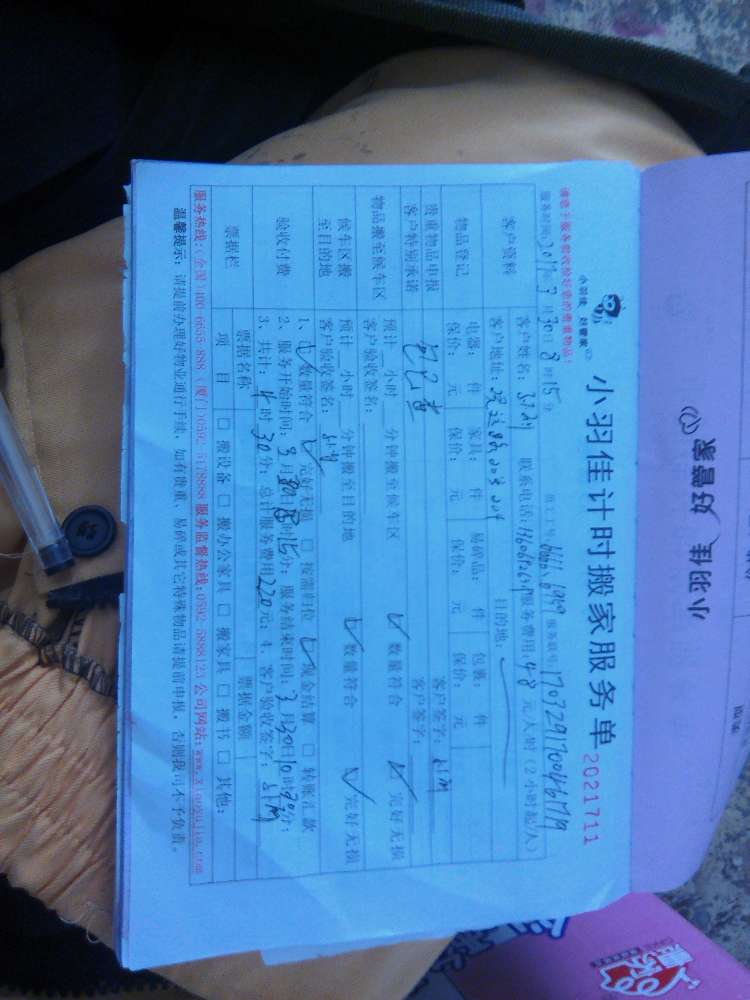 小羽佳 好管家
小羽佳 好管家
小羽佳计时搬家服务单
2021711
请您于服务前收检好您的贵重物品!
服务时间:2017年3月30日8时15分 员工工号: 服务联号:
客户资料
客户姓名: 联系电话: 服务费用:48元/人时(2小时起/人)
客户地址: 目的地:
物品登记
电器: 件 家具: 件 易碎品: 件 包裹: 件
保价: 元 保价: 元 保价: 元 保价: 元
贵重物品申报 客户签字:
客户特别承诺 客户签字:
物品搬至候车区
预计 小时 分钟搬至候车区 ✓数量符合 ✓完好无损
客户验收签名:
候车区搬至目的地
预计 小时 分钟搬至目的地 ✓数量符合 ✓完好无损
客户验收签名:
验收付费
1、✓数量符合 ✓完好无损 □ 按需归位 ✓现金结算 □ 转账汇款
2、服务开始时间:3月30日8时15分;服务结束时间:3月30日10时30分;
3、共计:4时30分;总计服务费用220元;4、客户验收签字:
票据栏
票据名称 票据金额
项目 □ 搬设备 □ 搬办公家具 □ 搬家具 □ 搬书 □ 其他:
服务热线:(全国)400-6655-888 (厦门)0592-5178888 服务监督热线:0592-5888123 公司网站:www.xiaoyujia.com
温馨提示:请提前办理好物业通行手续,如有贵重、易碎或其它特殊物品请提前申报,否则我司不予负责。